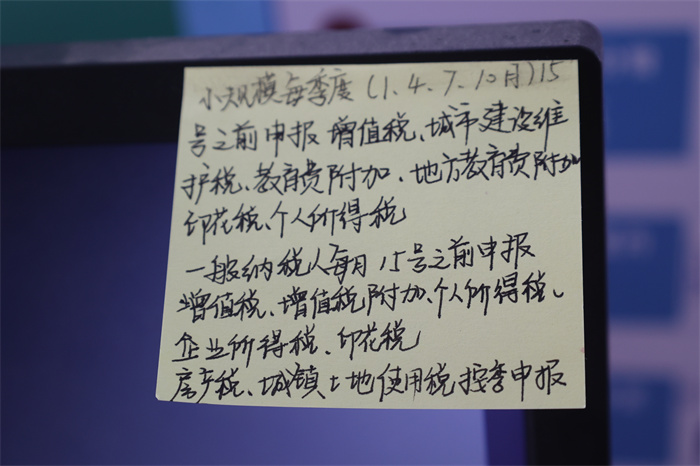 小规模每季度(1.4.7.10月)15
号之前申报 增值税、城市建设维
护税、教育费附加、地方教育费附加
印花税、个人所得税
一般纳税人每月15号之前申报
增值税、增值税附加、个人所得税、
企业所得税、印花税
房产税、城镇土地使用税按季申报